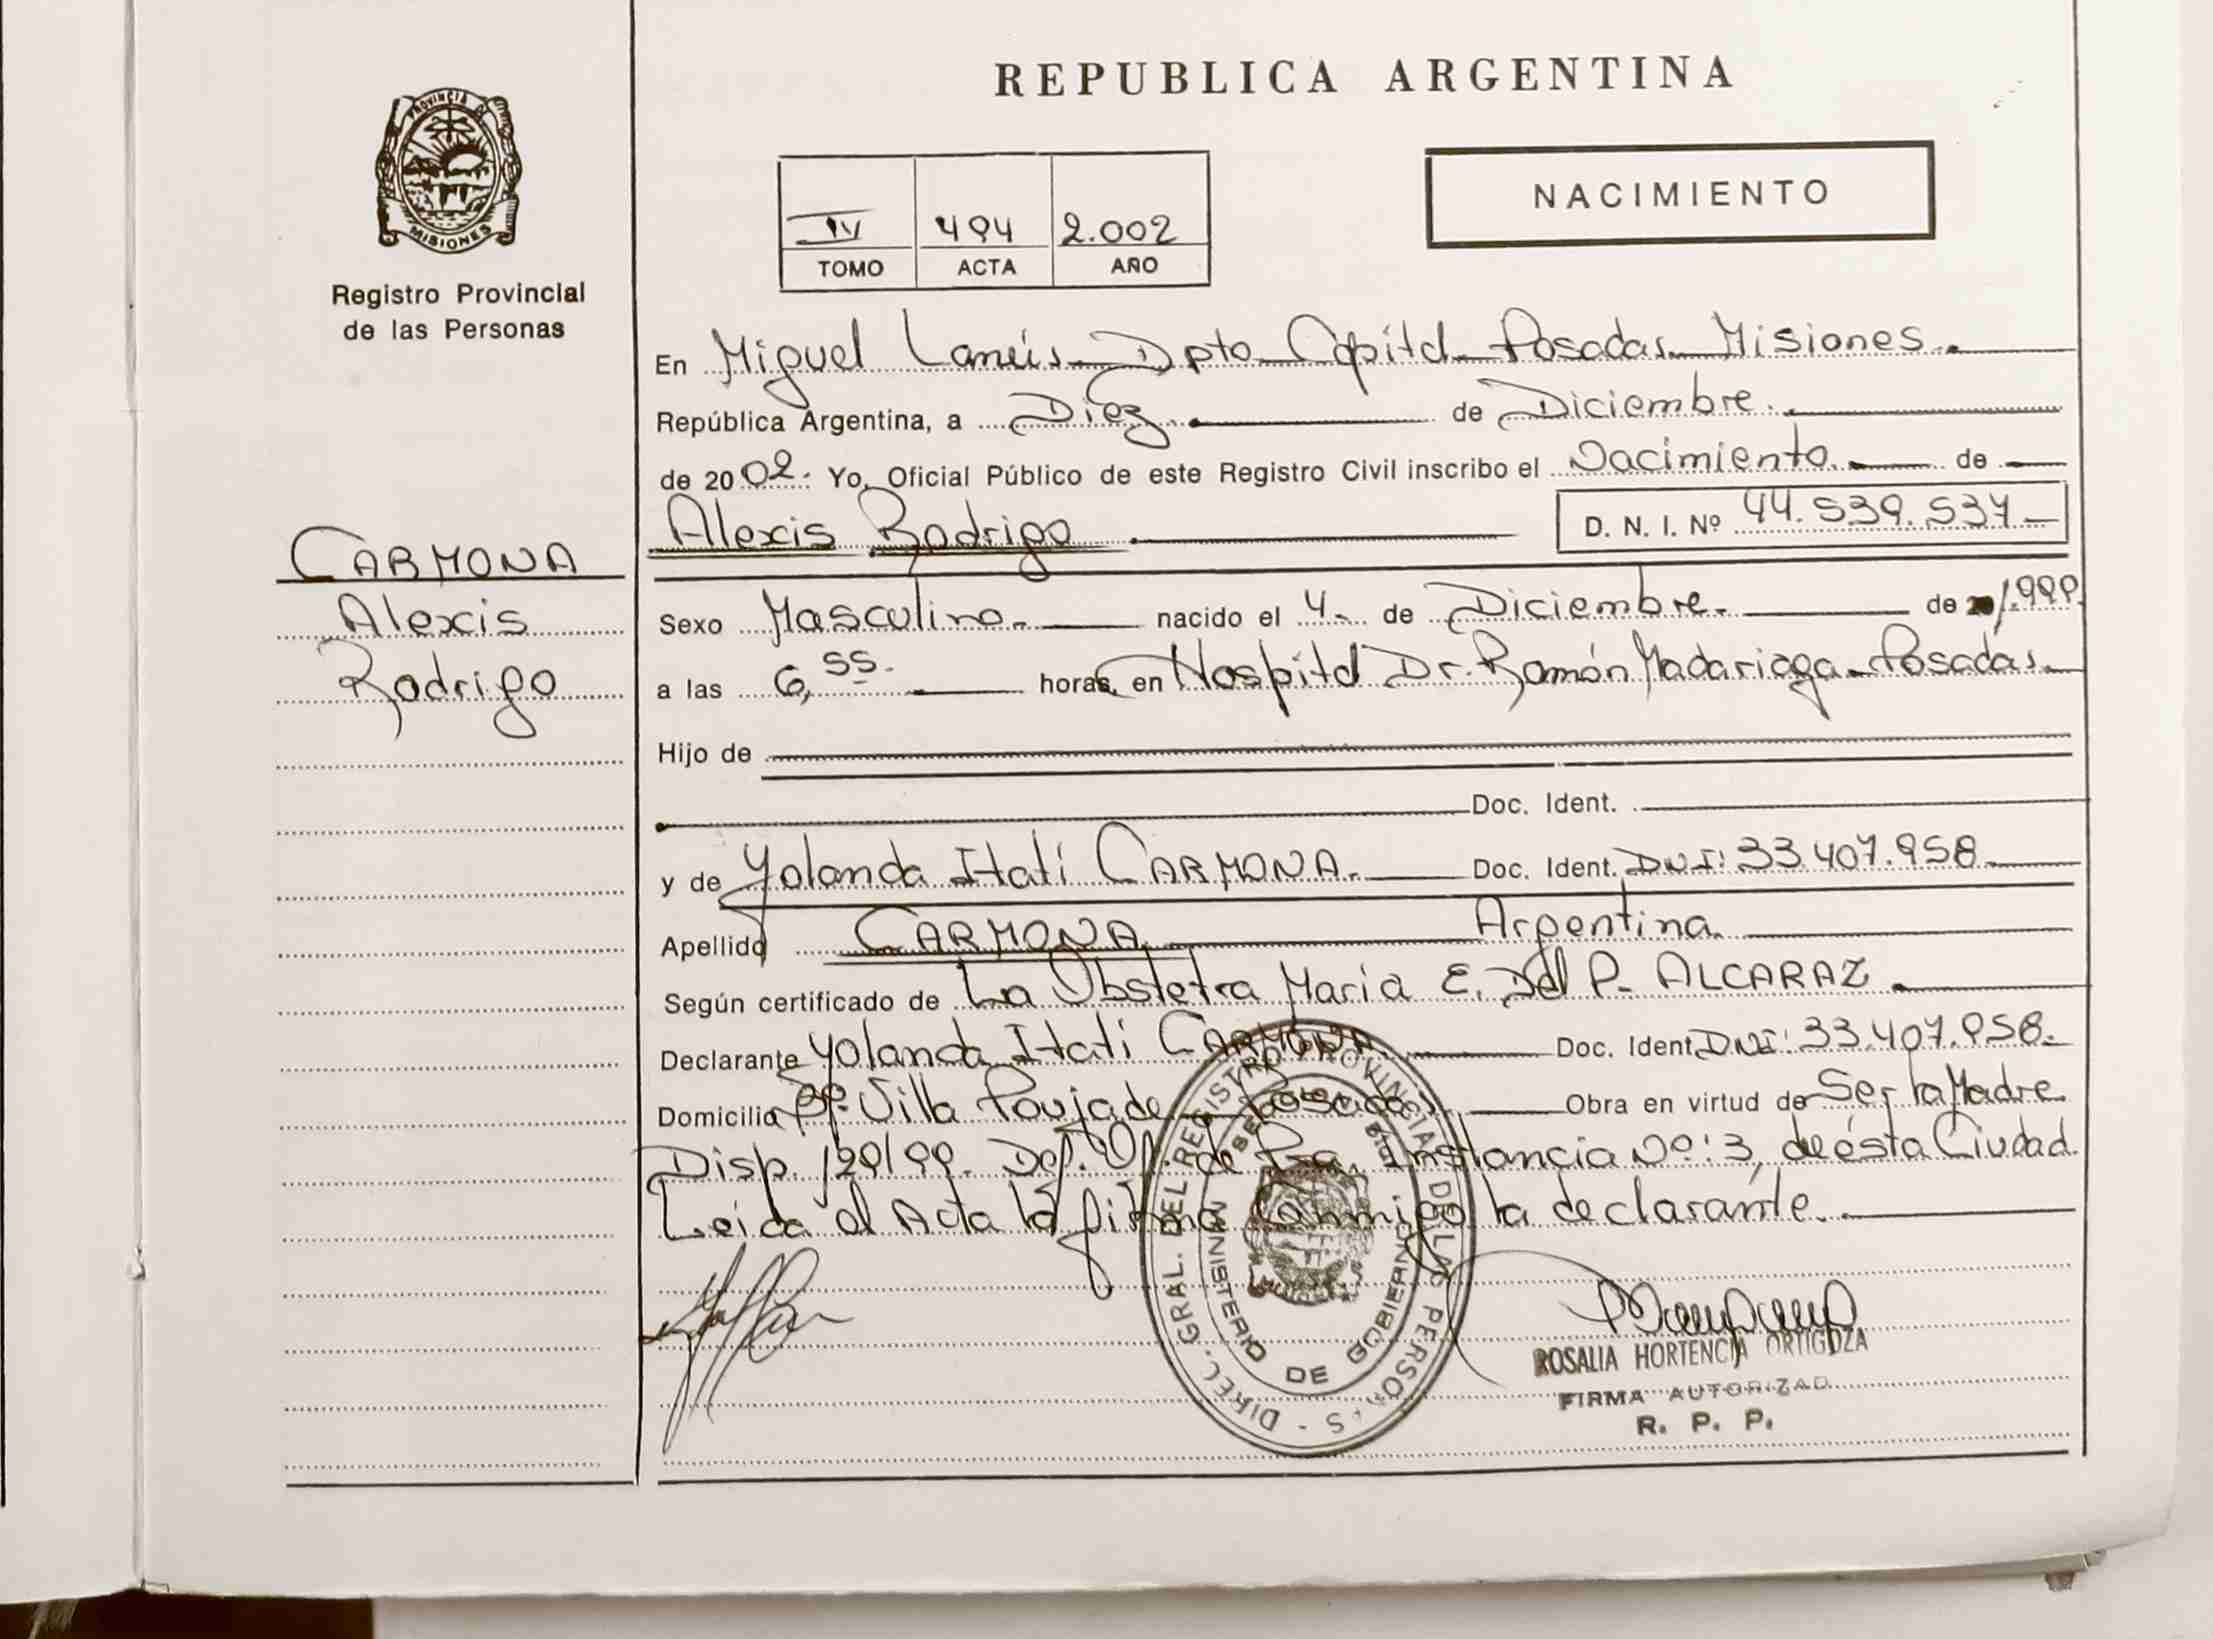 REPUBLICA ARGENTINA
PROVINCIA DE
MISIONES
Registro Provincial
de las Personas
NACIMIENTO
IV 494 2.002
TOMO ACTA AÑO
En Miguel Lanús Dpto Capital Posadas Misiones.
República Argentina, a Diez de Diciembre.
de 2002. Yo, Oficial Público de este Registro Civil inscribo el Nacimiento. de
Alexis Rodrigo D. N. I. Nº 44.539.537
CARMONA
Alexis
Rodrigo
Sexo Masculino. nacido el 4. de Diciembre. de 1.999.
a las 6,55. horas, en Hospital Dr. Ramón Madariaga Posadas.
Hijo de
Doc. Ident.
y de Yolanda Itatí CARMONA. Doc. Ident. DNI: 33.407.958
Apellido CARMONA Argentina.
Según certificado de La Obstetra Maria E. Del P. ALCARAZ.
Declarante Yolanda Itatí CARMONA. Doc. Ident DNI: 33.407.958.
Domicilia Bº. Villa Poujade Posadas. Obra en virtud de Ser la Madre
Disp. 120/99. Def. Of. de 1ra. Instancia Nº: 3, de ésta Ciudad.
Leida el Acta la firma Conmigo la declarante.
DIREC. GRAL. DEL REGISTRO PROVINCIAL DE LAS PERSONAS
MINISTERIO DE GOBIERNO
ROSALIA HORTENCIA ORTIGOZA
FIRMA AUTORIZAD
R. P. P.